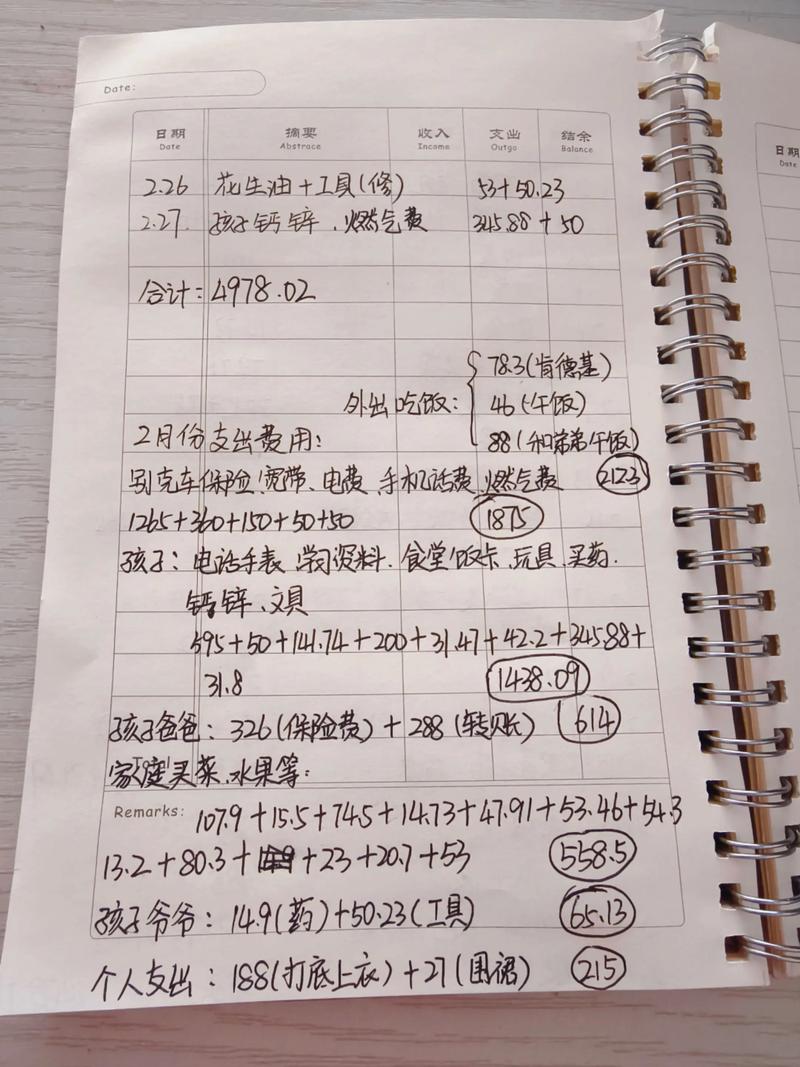 Date:
日期 摘要 收入 支出 结余
Date Abstrace Income Outgo Balance
2.26 花生油+工具(修) 53+50.23
2.27. 孩子钙锌、燃气费 345.88+50
合计:4978.02
78.3(肯德基)
外出吃饭: 46(午饭)
88(和弟弟午饭)
2月份支出费用:
别克车保险、宽带、电费、手机话费、燃气费 212.3
1265+360+150+50+50 1875
孩子:电话手表、学习资料、食堂饭卡、玩具、买药、
钙锌、文具
595+50+141.74+200+31.47+42.2+345.88+
31.8 1438.09
孩子爸爸:326(保险费)+288(转账) 614
家庭买菜、水果等:
Remarks: 107.9+15.5+74.5+14.73+47.91+53.46+54.3
13.2+80.3+ +23+20.7+53 558.5
孩子爷爷:14.9(药)+50.23(工具) 65.13
个人支出:188(打底上衣)+27(围裙) 215
日期
Date